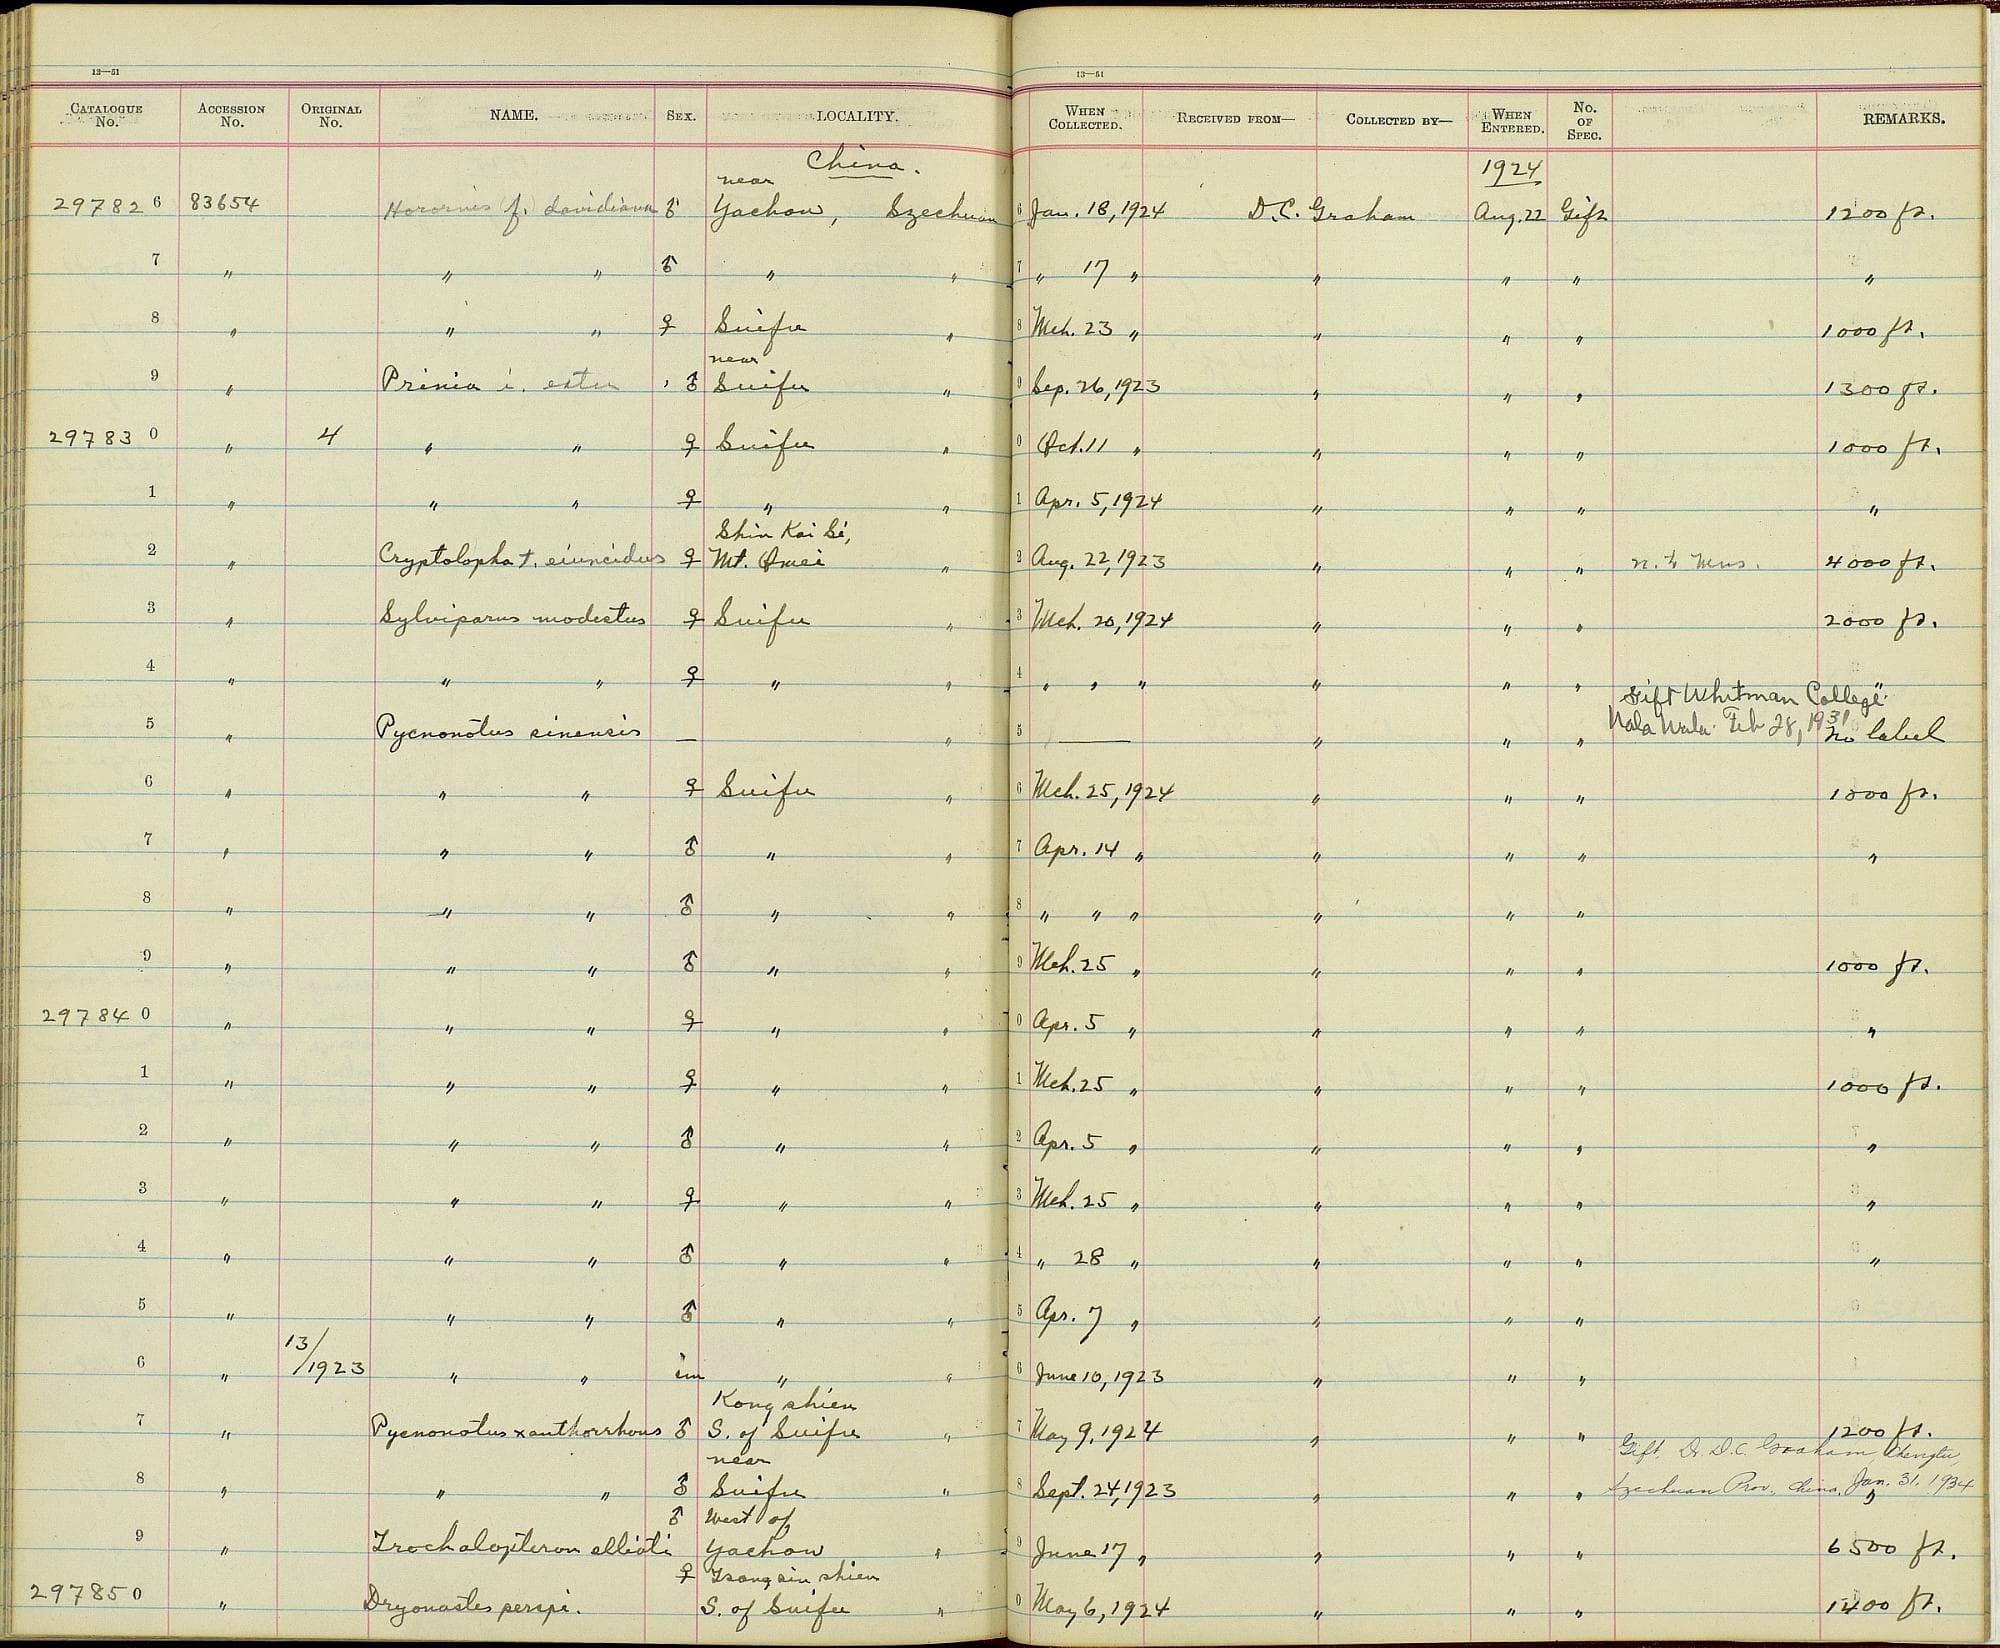 13—51
13—51
CATALOGUE No. ACCESSION No. ORIGINAL No. NAME. SEX. LOCALITY. WHEN COLLECTED. RECEIVED FROM— COLLECTED BY— WHEN ENTERED. No. OF SPEC. REMARKS.
China. 1924
near
297826 83654 Horornis f. davidiana ♂ Yachow, Szechuan 6 Jan. 18, 1924 D.C. Graham Aug. 22 Gift 1200 ft.
7 " " " ♂ " " 7 " 17 " " " " "
8 " " " ♀ Suifu " 8 Mch. 23 " " " " 1000 ft.
near
9 " Prinia i. ♂ Suifu " 9 Sep. 26, 1923 " " " 1300 ft.
297830 " 4 " " ♀ Suifu " 0 Oct. 11 " " " " 1000 ft.
1 " " " ♀ " " 1 Apr. 5, 1924 " " " "
Shin Kai Si,
2 " Cryptolopha t. ♀ Mt. Omei " 2 Aug. 22, 1923 " " " Mus. 4000 ft.
3 " Sylviparus modestus ♀ Suifu " 3 Mch. 20, 1924 " " " 2000 ft.
4 " " " ♀ " " 4 " " " " " " "
Gift Whitman College
Wala Wala. Feb 28, 1931
5 " Pycnonotus sinensis — " 5 — " " " No label
6 " " " ♀ Suifu " 6 Mch. 25, 1924 " " " 1000 ft.
7 " " " ♂ " " 7 Apr. 14 " " " " "
8 " " " ♂ " " 8 " " " " " "
9 " " " ♂ " " 9 Mch. 25 " " " " 1000 ft.
297840 " " " ♀ " " 0 Apr. 5 " " " " "
1 " " " ♀ " " 1 Mch. 25 " " " " 1000 ft.
2 " " " ♂ " " 2 Apr. 5 " " " " "
3 " " " ♀ " " 3 Mch. 25 " " " " "
4 " " " ♂ " " 4 " 28 " " " " "
5 " " " ♂ " " 5 Apr. 7 " " " "
6 " 13/1923 " " im " " 6 June 10, 1923 " " "
Kong shien
7 " Pycnonotus xanthorrhous ♂ S. of Suifu " 7 May 9, 1924 " " " 1200 ft.
Gift, Dr. D.C. Graham, Chengtu,
Szechuan Prov., China, Jan. 31, 1934
near
8 " " " ♂ Suifu " 8 Sept. 24, 1923 " " " "
♂ West of
9 " Trochalopteron ellioti Yachow " 9 June 17 " " " " 6500 ft.
♀ Tsang sin shien
297850 " Dryonastes perspi. S. of Suifu " 0 May 6, 1924 " " " 1400 ft.